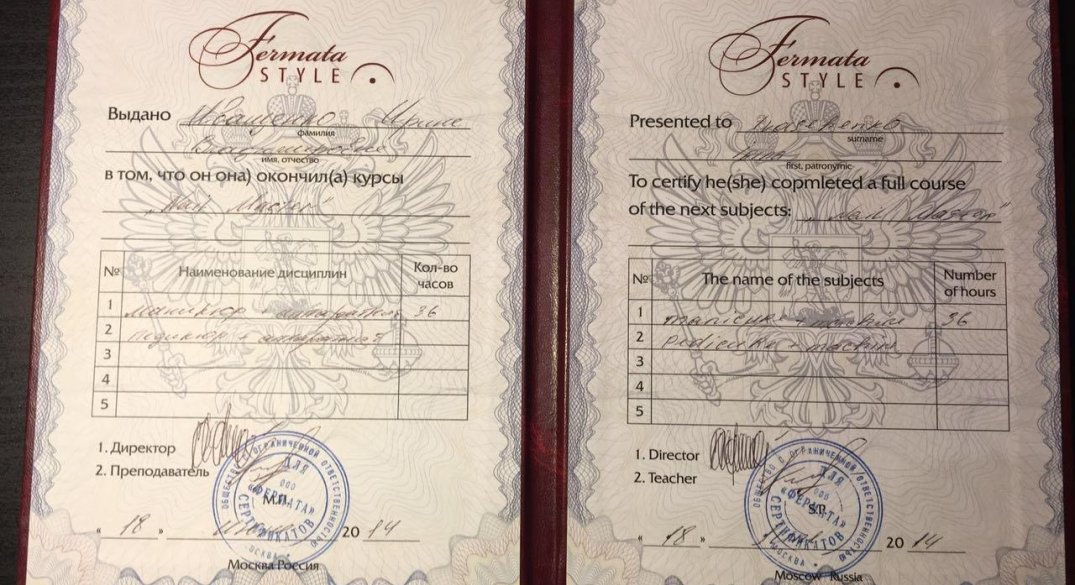 Fermata
STYLE
Выдано Иващенко Ирине
фамилия
Владимировне
имя, отчество
в том, что он она) окончил(а) курсы
„Nail Master"
№ Наименование дисциплин Кол-во часов
1 маникюр + аппаратный 36
2 педикюр + аппаратный
3
4
5
1. Директор
2. Преподаватель
М.П.
ОБЩЕСТВО С ОГРАНИЧЕННОЙ ОТВЕТСТВЕННОСТЬЮ
ДЛЯ
ООО
«ФЕРМАТА»
СЕРТИФИКАТОВ
МОСКВА
« 18 » 2014
Москва Россия
Fermata
STYLE
Presented to
surname
first, patronymic
To certify he(she) copmleted a full course
of the next subjects: „Nail Master"
№ The name of the subjects Number of hours
1 36
2
3
4
5
1. Director
2. Teacher
S.P.
ОБЩЕСТВО С ОГРАНИЧЕННОЙ ОТВЕТСТВЕННОСТЬЮ
ДЛЯ
ООО
«ФЕРМАТА»
СЕРТИФИКАТОВ
МОСКВА
« 18 » 2014
Moscow Russia